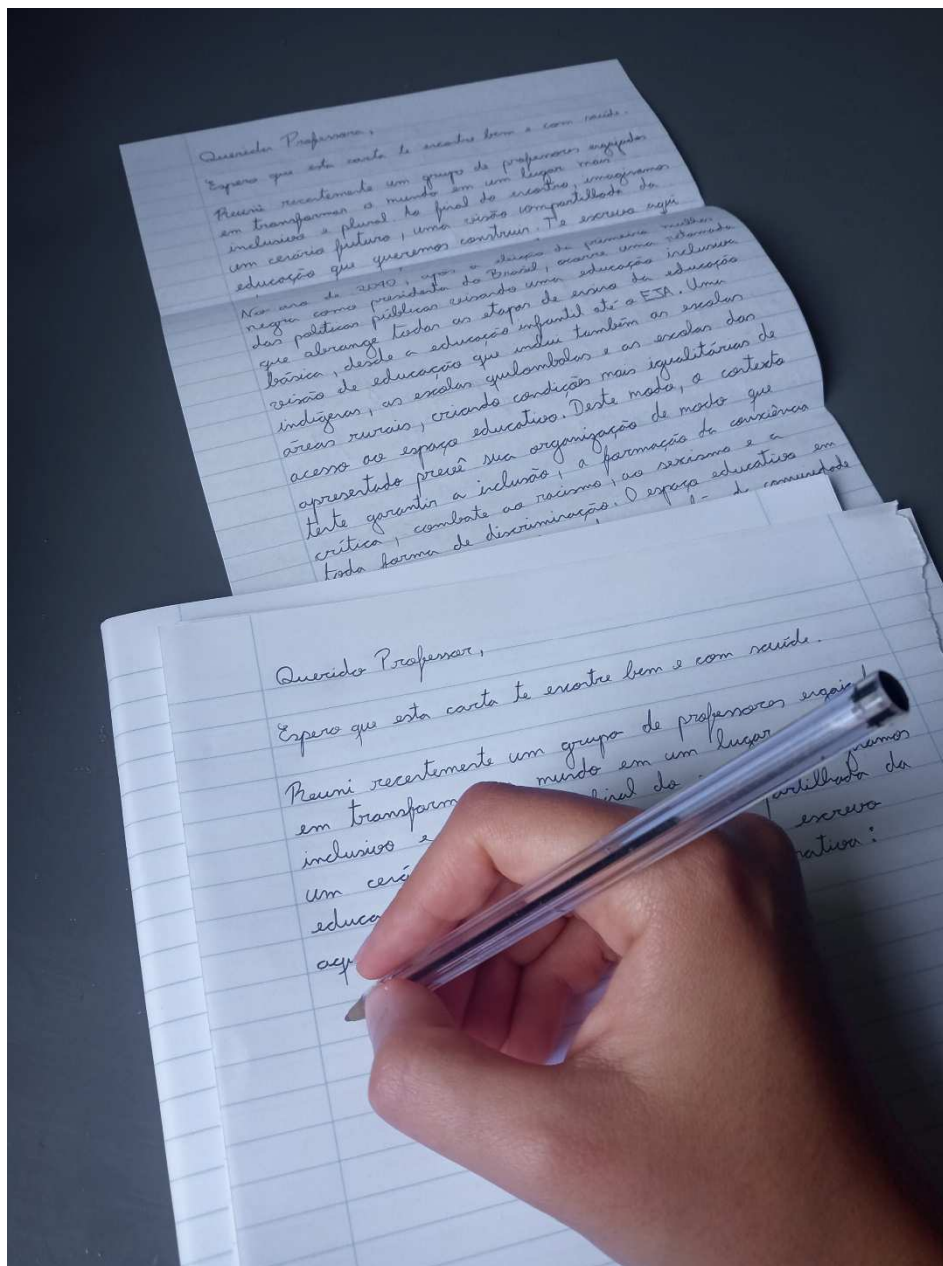 Querida Professora,
Espero que esta carta te encontre bem e com saúde.
Reuni recentemente um grupo de professores engajados
em transformar o mundo em um lugar mais
inclusivo e plural. Ao final do encontro, imaginamos
um cenário futuro, uma visão compartilhada da
educação que queremos construir. Te escrevo aqui
No ano de 2040, após a eleição da primeira mulher
negra como presidenta do Brasil, ocorre uma retomada
das políticas públicas visando uma educação inclusiva
que abrange todas as etapas de ensino da educação
básica, desde a educação infantil até a EJA. Uma
visão de educação que inclui também as escolas
indígenas, as escolas quilombolas e as escolas das
áreas rurais, criando condições mais igualitárias de
acesso ao espaço educativo. Deste modo, o contexto
apresentado prevê sua organização de modo que
tente garantir a inclusão, a formação da consciência
crítica, combate ao racismo, ao sexismo e a
toda forma de discriminação. O espaço educativo em
de comunidade
Querido Professor,
Espero que esta carta te encontre bem e com saúde.
Reuni recentemente um grupo de professores
em mundo em um lugar
inclusivo e final do
um da
escrevo